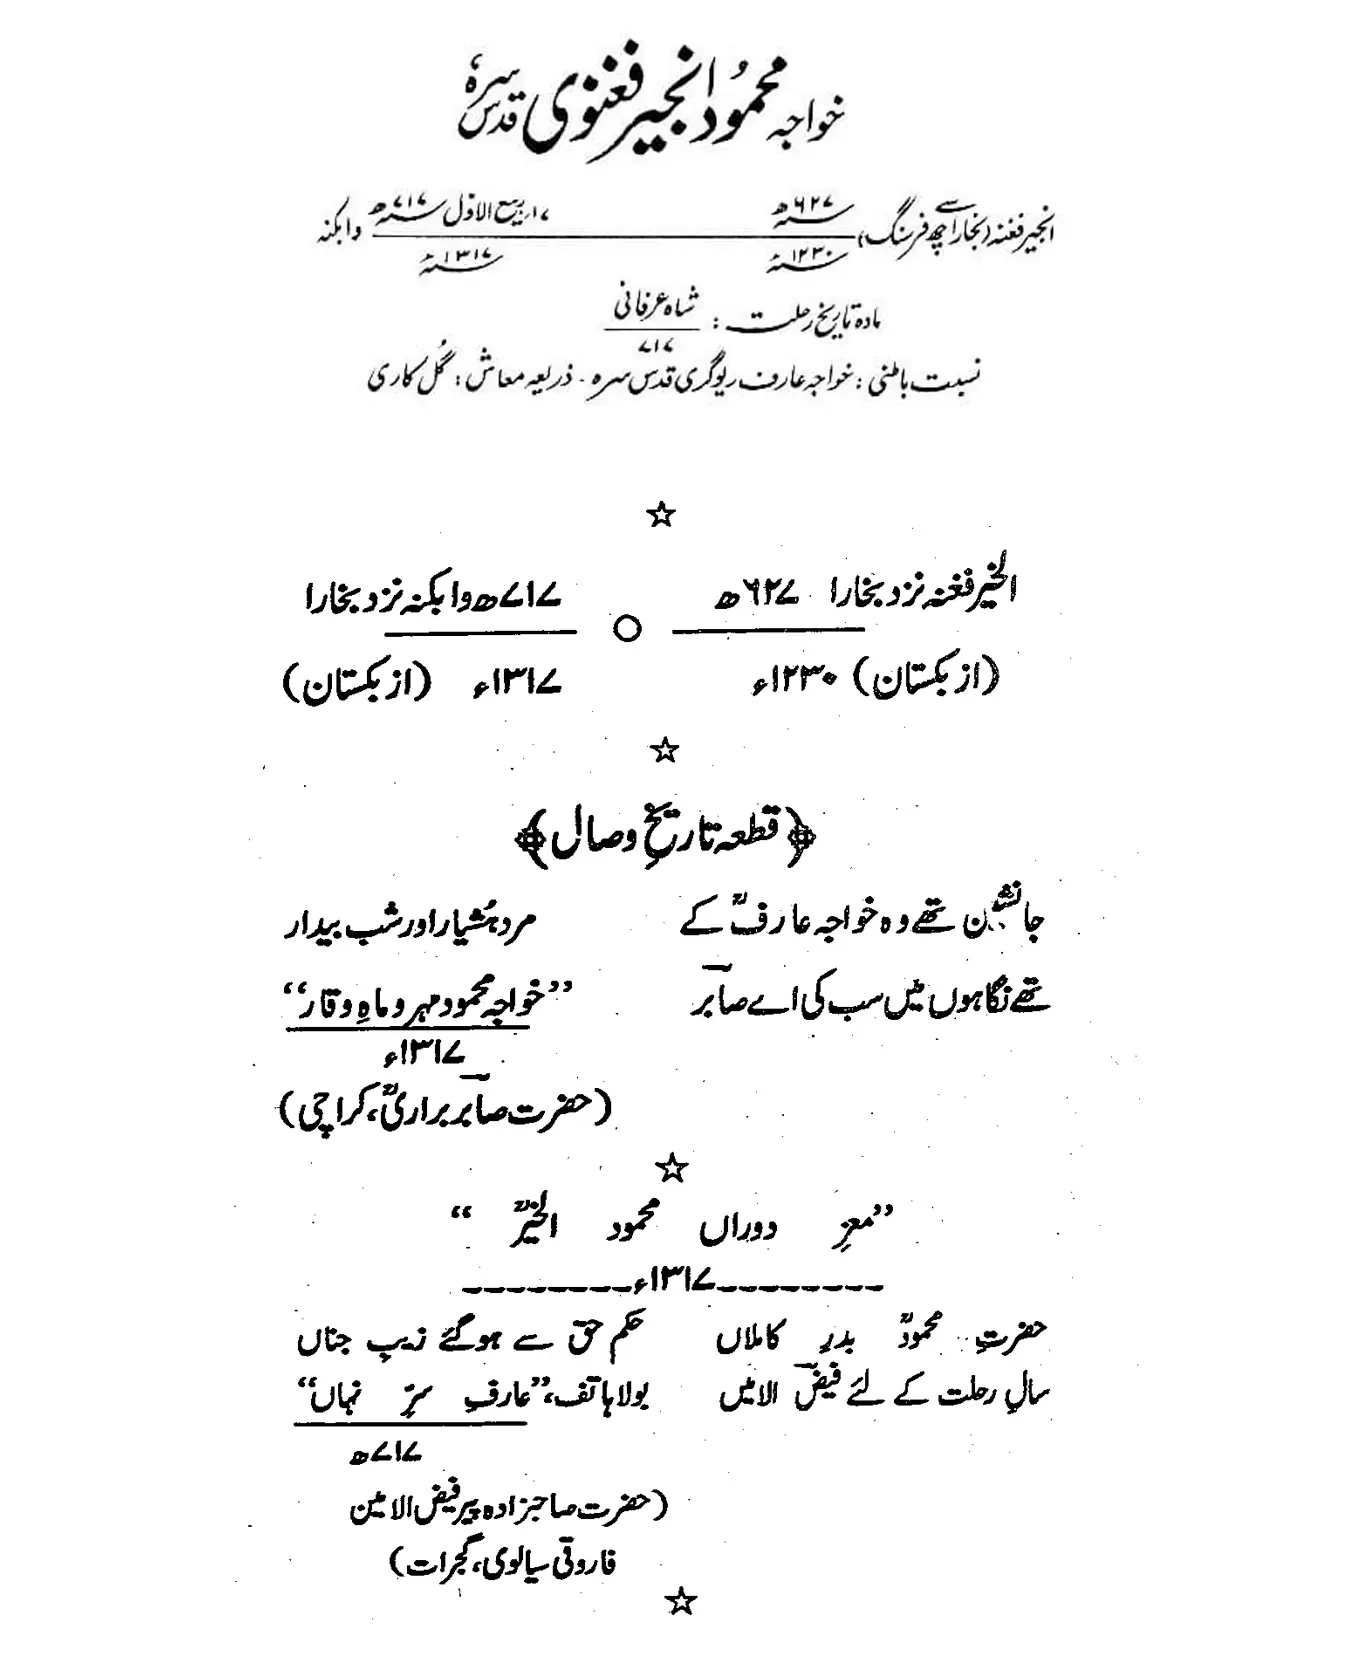 خواجہ محمُود انجیر فغنوی قدس سرہٗ
انجیر فغنہ (بخارا سے چھ فرسنگ) ۶۲۷ھ ۱۷ ربیع الاوّل ۷۱۷ھ وابکنہ
۱۲۳۰ء ۱۳۱۷ء
مادہ تاریخ رحلت : شاہ عرفانی
۷۱۷
نسبت باطنی : خواجہ عارف ریوگری قدس سرہ ۔ ذریعہ معاش : گُل کاری
☆
الخیر فغنہ نزد بخارا ۶۲۷ھ ۷۱۷ھ وابکنہ نزد بخارا
(ازبکستان) ۱۲۳۰ء ۱۳۱۷ء (ازبکستان)
☆
﴿قطعہ تاریخِ وصال﴾
جانشین تھے وہ خواجہ عارفؒ کے مرد ہُشیار اور شب بیدار
تھے نگاہوں میں سب کی اے صابرؔ ”خواجہ محمود مہر و ماہِ وقار“
۱۳۱۷ء
(حضرت صابرؔ براریؒ، کراچی)
☆
”معزِ دوراں محمود الخیرؒ“
۱۳۱۷ء
حضرتِ محمودؒ بدرِ کاملاں حکم حق سے ہوگئے زیبِ جناں
سالِ رحلت کے لئے فیضؔ الامیں بولا ہاتف، ”عارفِ سرِّ نہاں“
۷۱۷ھ
(حضرت صاحبزادہ پیر فیض الامین
فاروقی سیالوی، گجرات)
☆